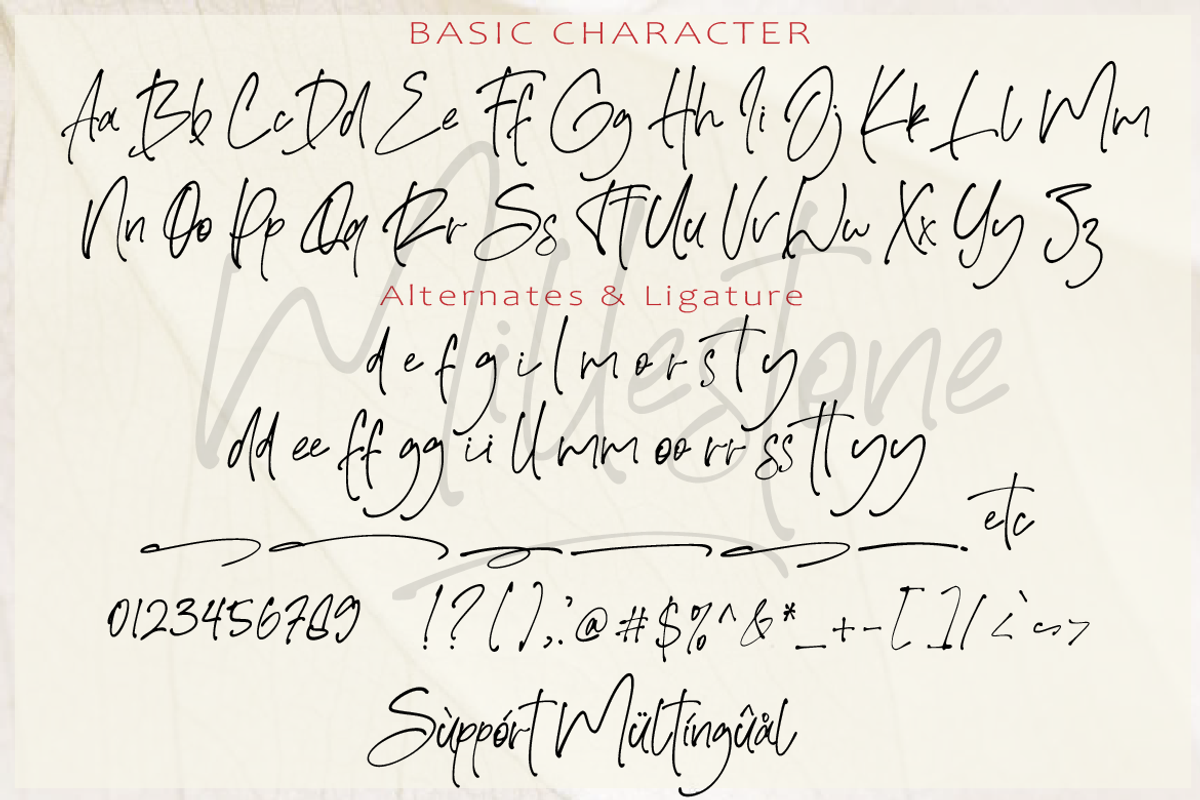 BASIC CHARACTER
Aa Bb Cc Dd Ee Ff Gg Hh Ii Jj Kk Ll Mm
Nn Oo Pp Qq Rr Ss Tt Uu Vv Ww Xx Yy Zz
Millestone
Alternates & Ligature
d e f g i l m o r s t y
dd ee ff gg ii ll mm oo rr ss tt yy
etc
0123456789 !?();:'@#$%^&*_+-[]/<`~>
Sùppórt Mültíngûål